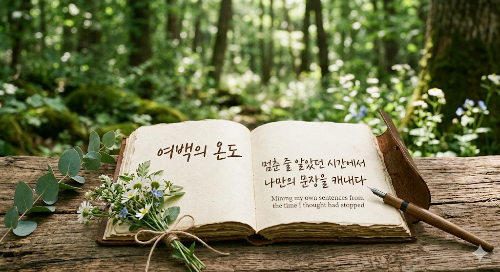 여백의 온도
멈춘 줄 알았던 시간에서
나만의 문장을 캐내다
Mining my own sentences from
the time I thought had stopped